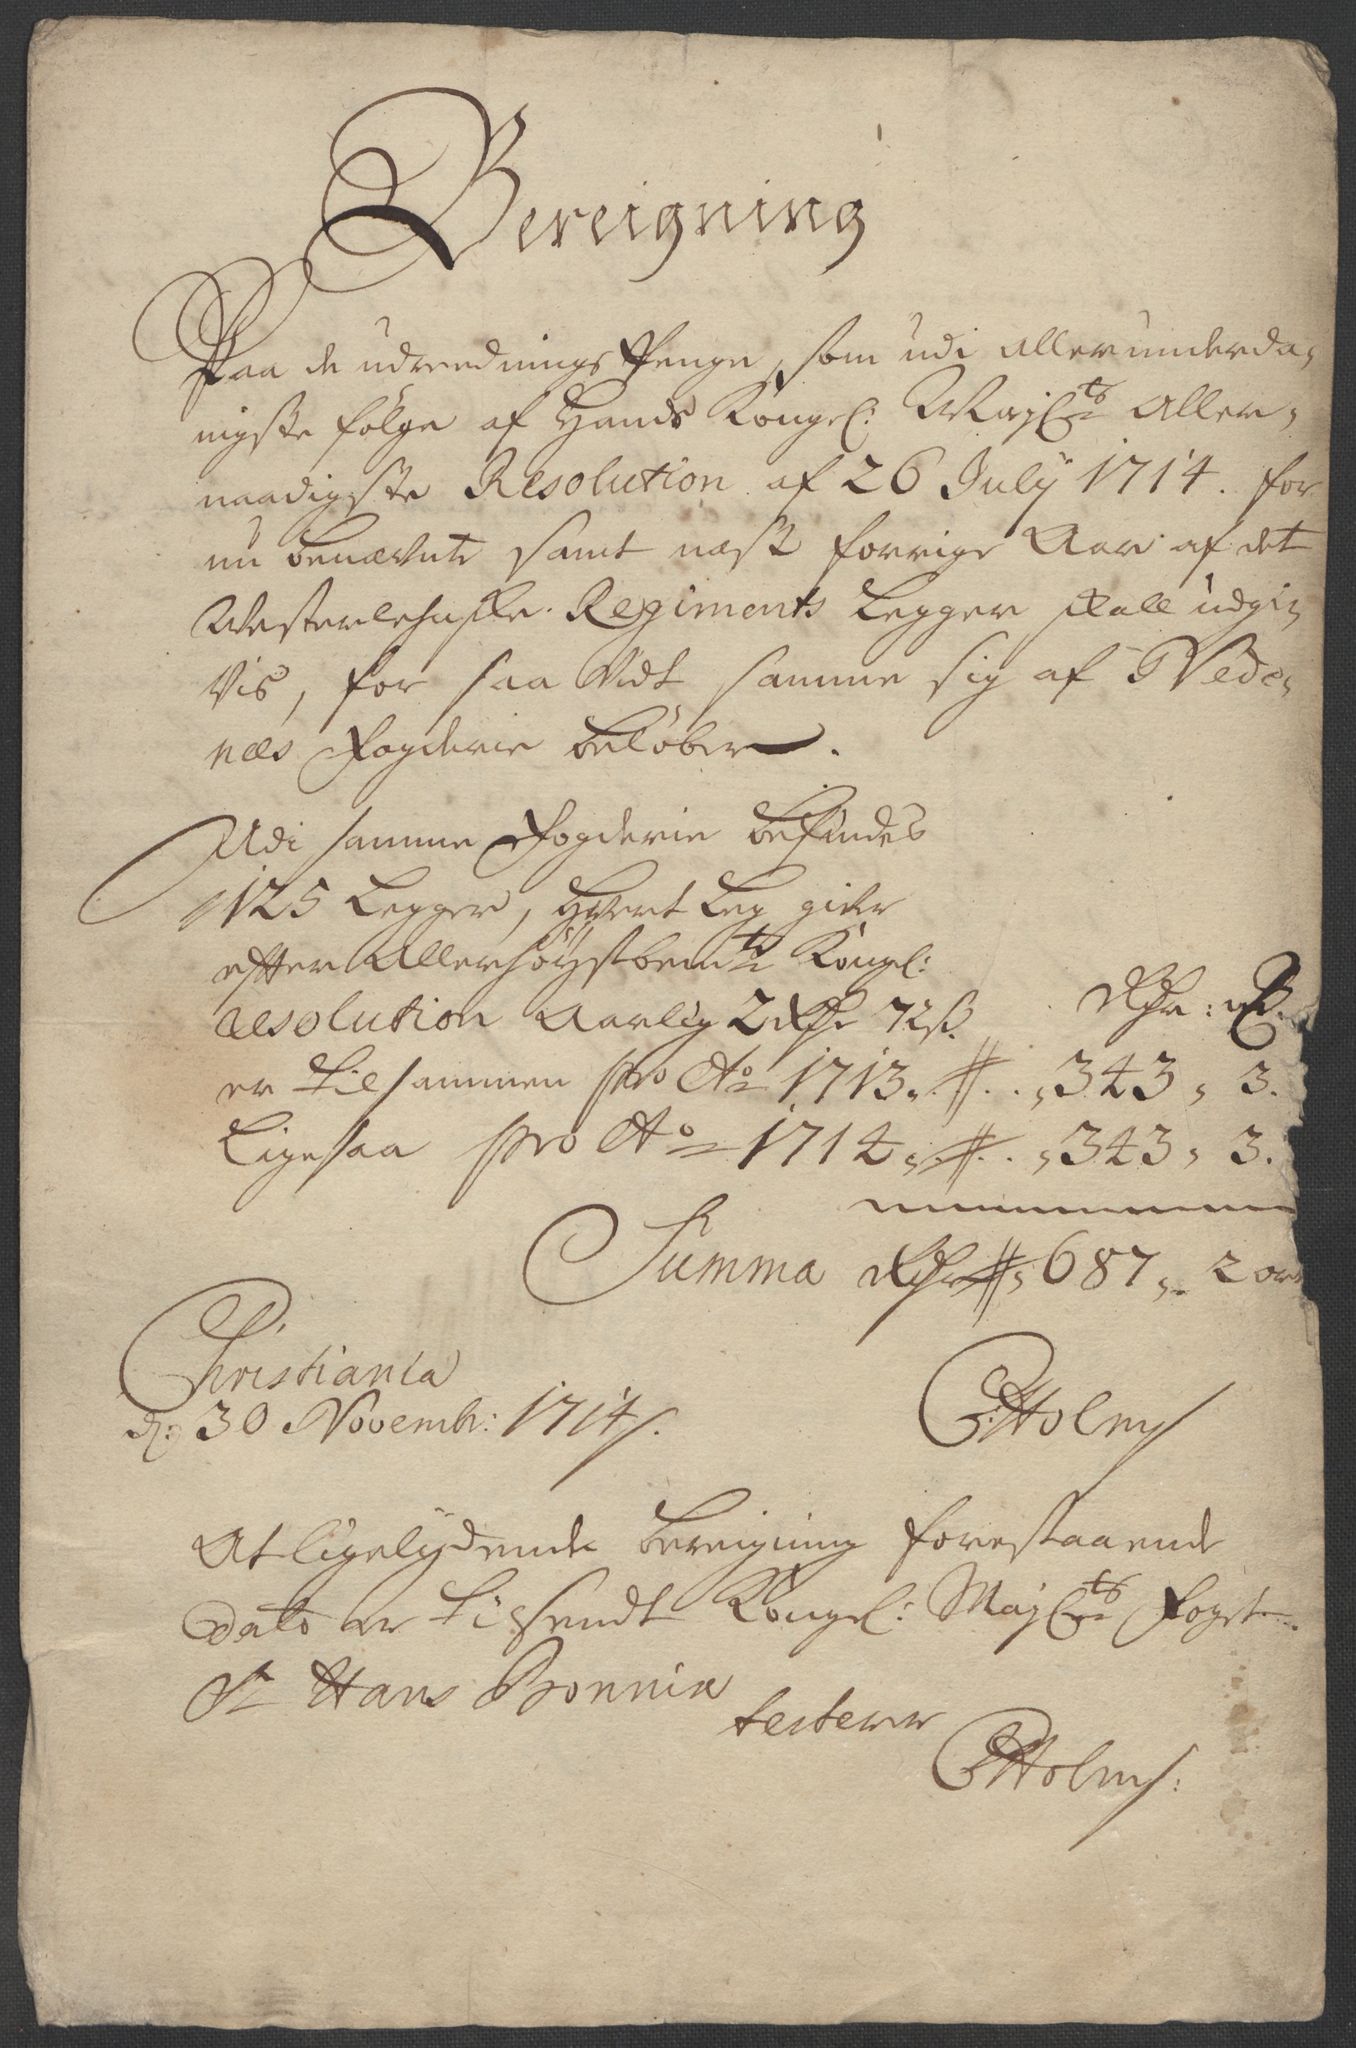 Bereigning
Paa de udreednings Penge, som udi allerunderda,
nigste følge af Hands Kongel: Mayᵗˢ Aller,
naadigste Resolution af 26 July 1714. for
nu benævnte samt næst forrige Aar af det
Westerlehnske Regiments Legger skall udgi,
vis, for saa vidt samme sig af Nede,
næs Fogderie beløber.
Udi samme Fogderie befindes
125 Legger, hvert Leg giver
efter Allerhøystbemᵗᵉ Kongel:
resolution Aarlig 2 Rdr 72 ß. Rdr: ort.
er tilsammen pro Aº 1713. # . . 343, 3.
Ligesaa pro Aº 1714. # . . 343, 3.
Summa Rdr # 687, 2 ort
Christiania
d: 30 Novemb: 1714.
CHolm
At ligelydende bereigning forestaaende
Dato er tilsendt Kongel: Mayᵗˢ Foget
Sr Hans Bonnix
testerer
CHolm: